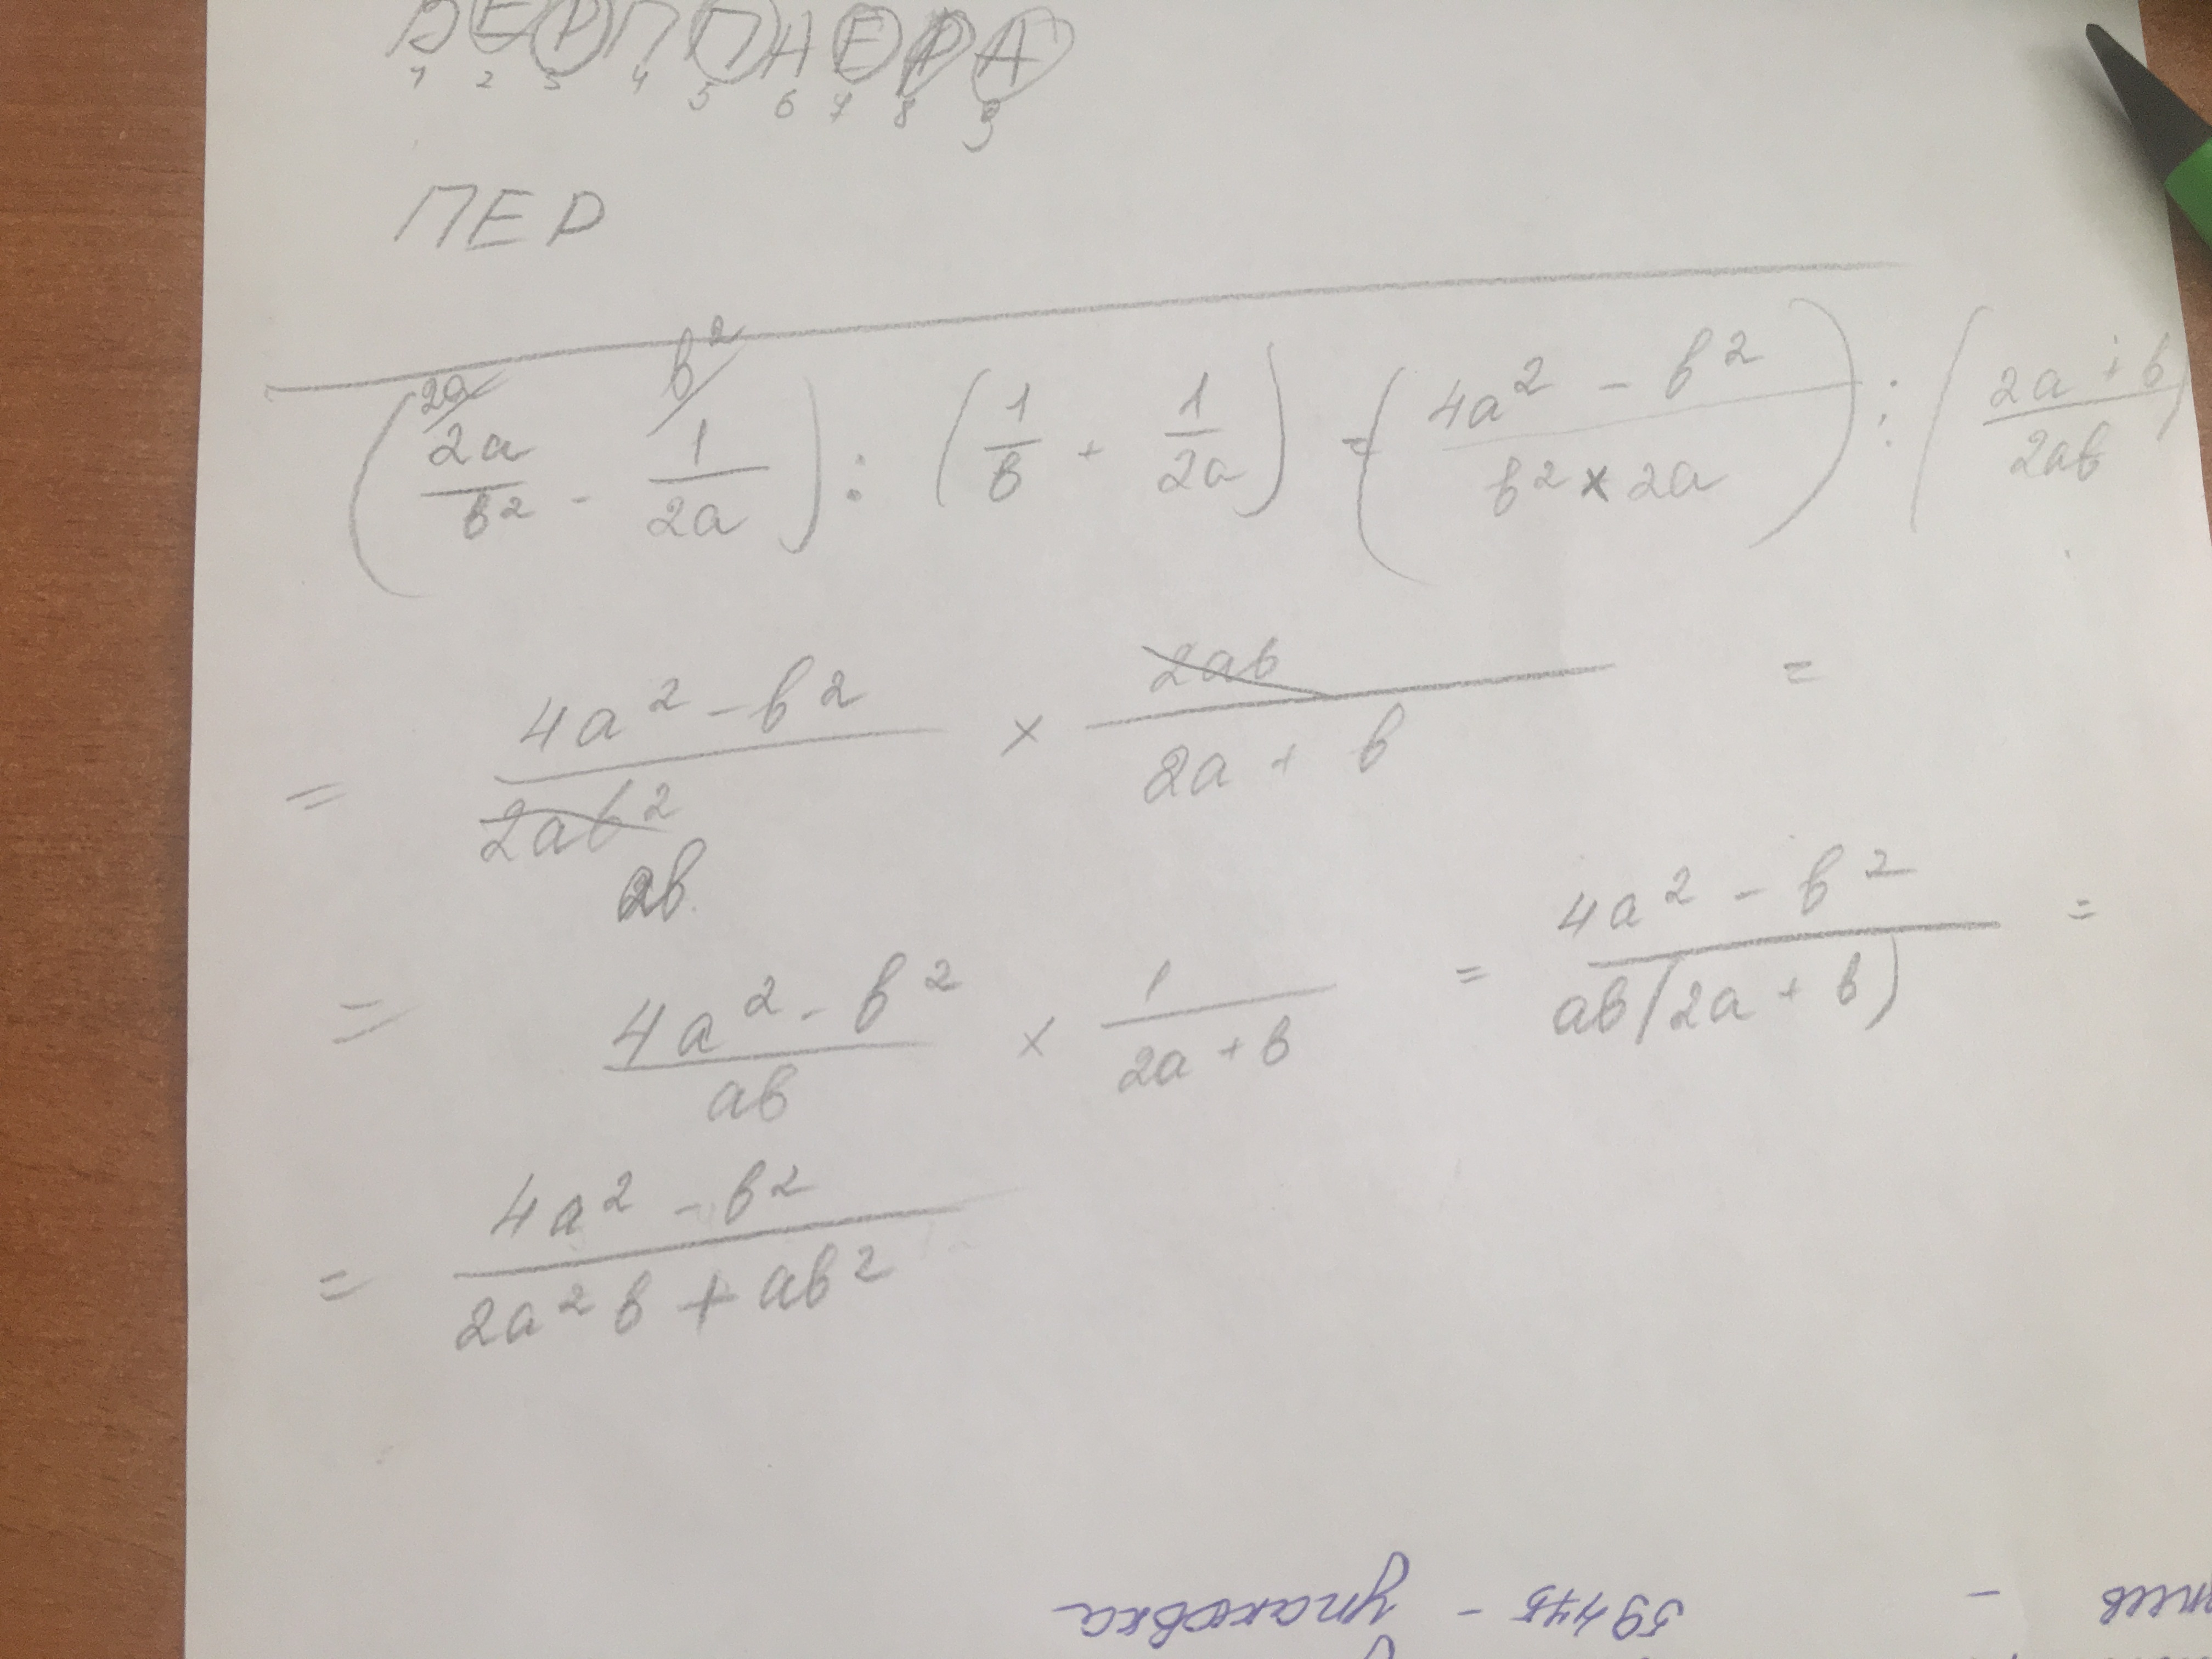 ДЕРППНЕРА
1 2 3 4 5 6 7 8 9
ПЕР
(2a/b² - 1/2a) : (1/b + 1/2a) = (4a² - b² / b² × 2a) : (2a + b / 2ab)
= 4a² - b² / 2ab² × 2ab / 2a + b =
ab
= 4a² - b² / ab × 1 / 2a + b = 4a² - b² / ab(2a + b) =
= 4a² - b² / 2a²b + ab²
упаковка